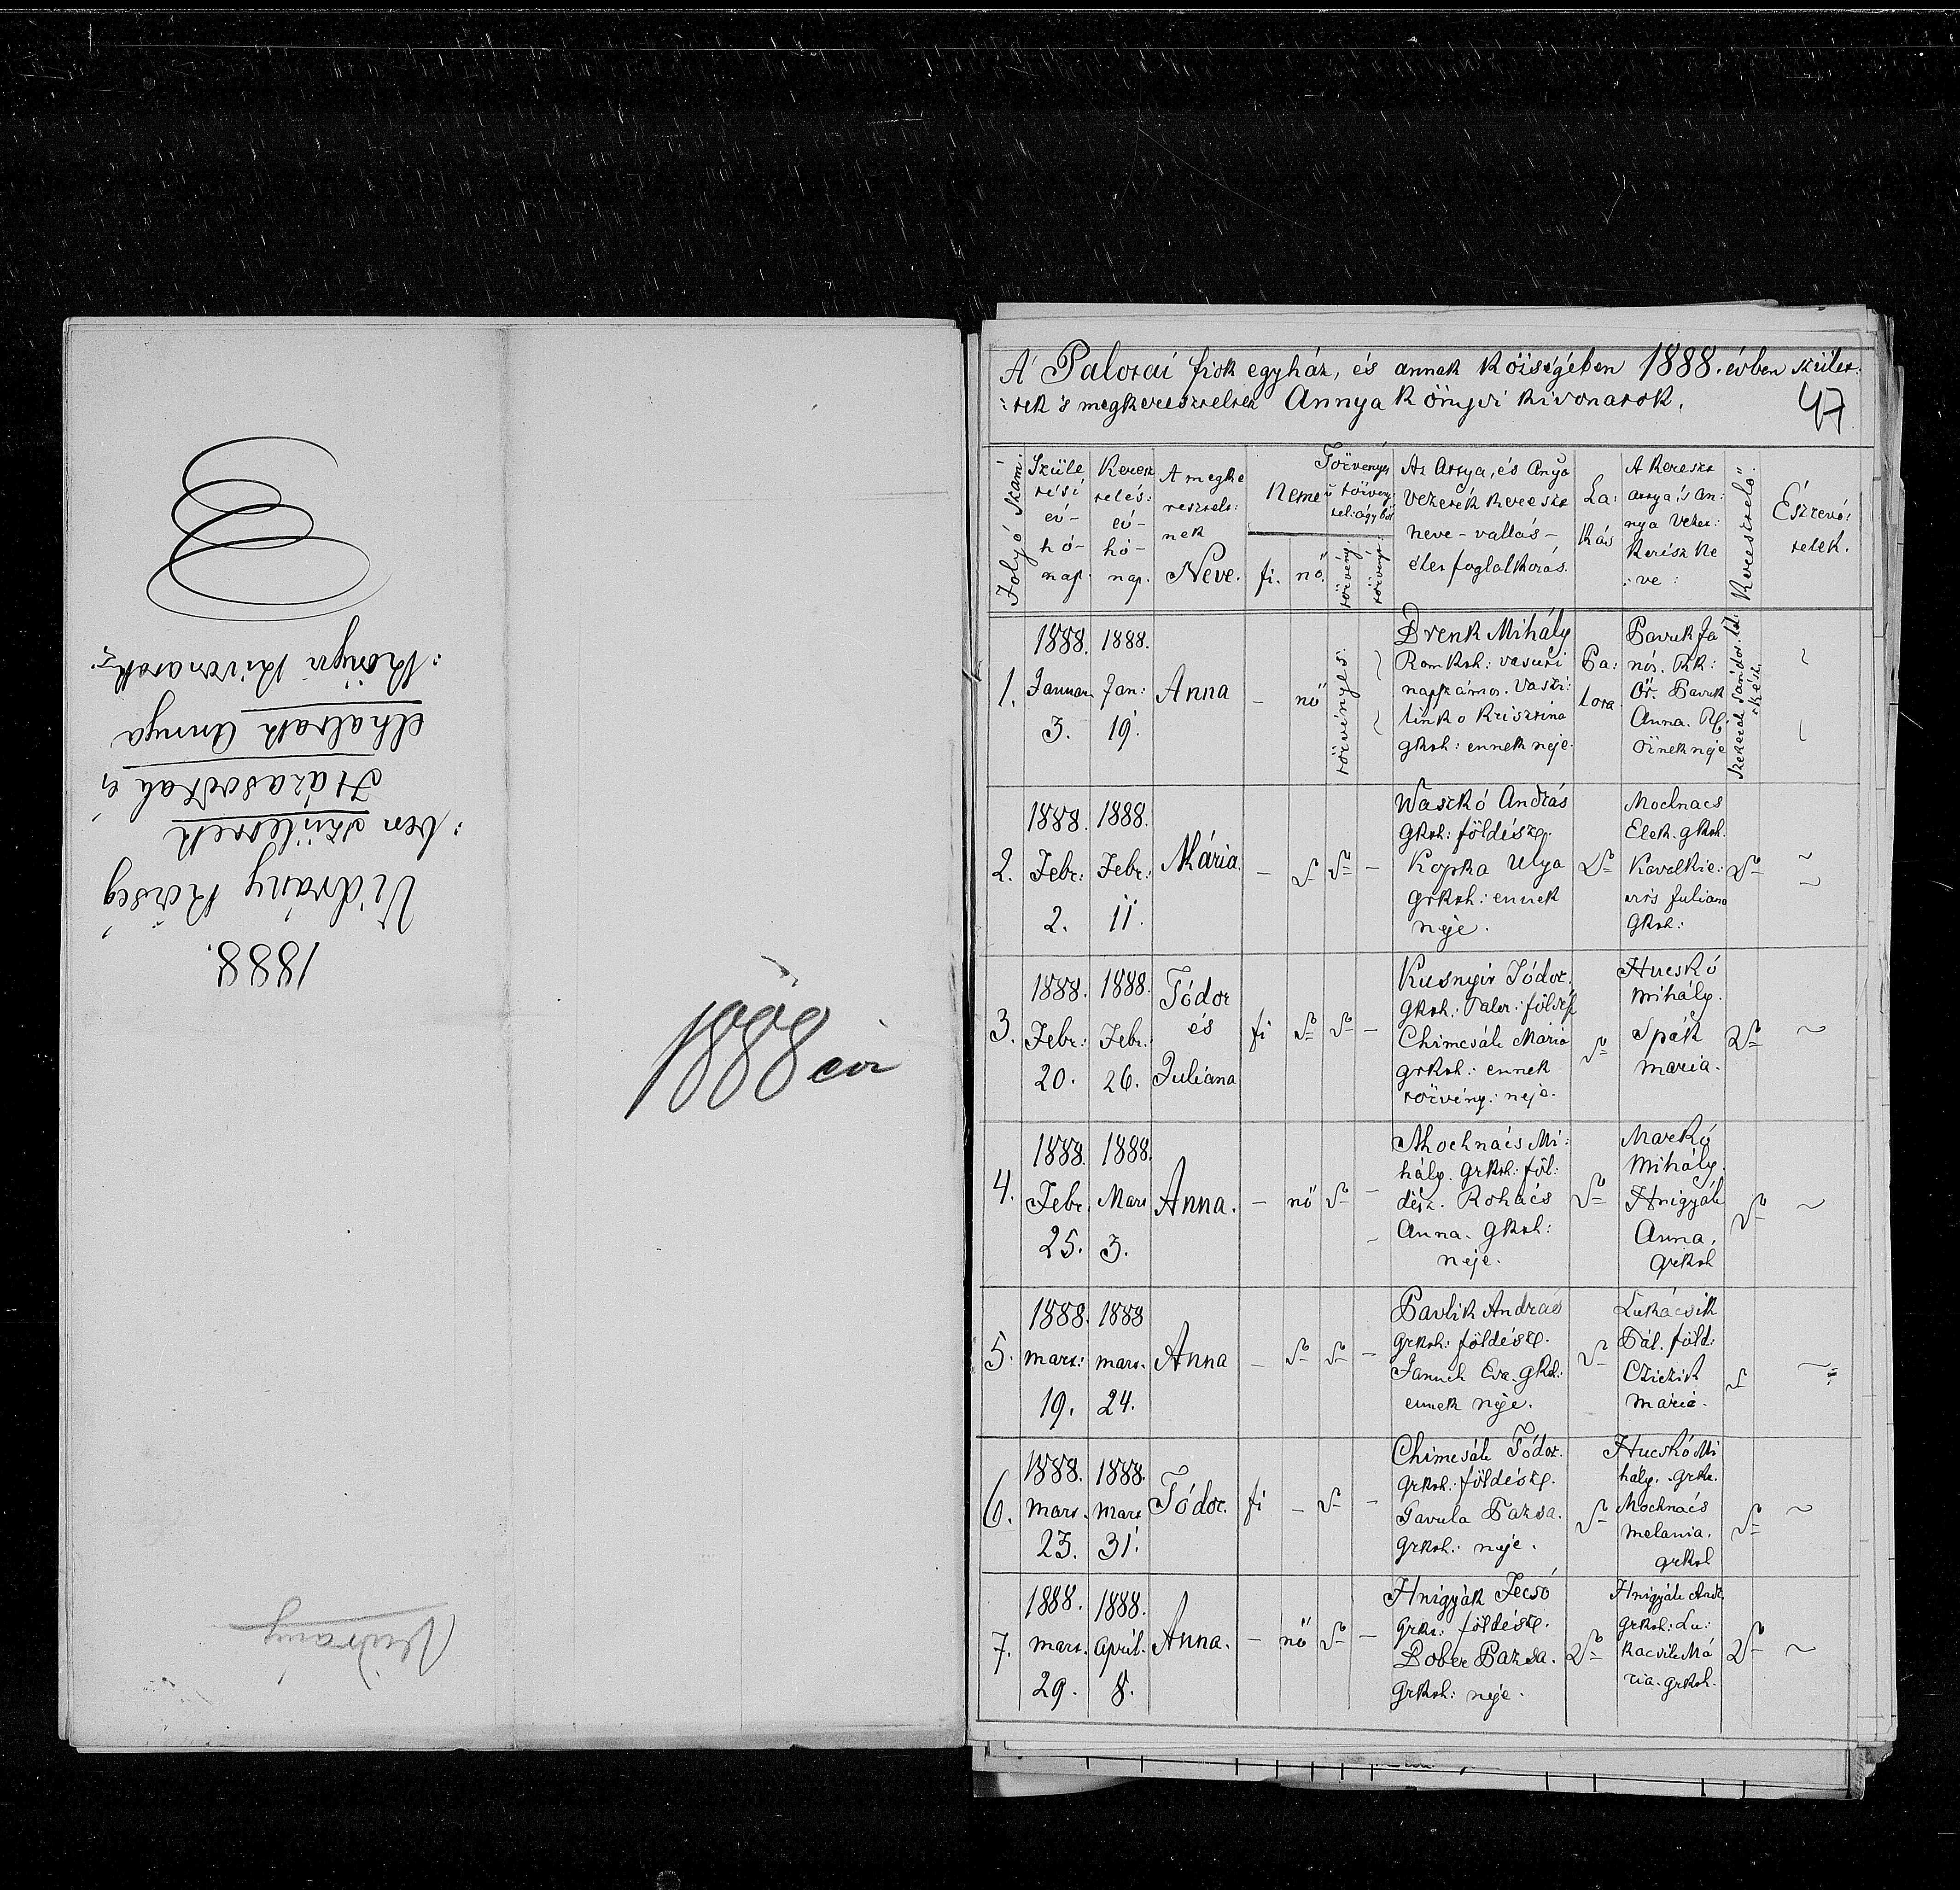 1888.
Vidrány Község
:ben születtek
Házasultak és
elhaltak Annya
:könyvi kivonatok:
Vidrány
1888 évi
A' Palotai fiok egyház, és annak Községében 1888. évben szület:
:tek 's megkereszteltek Annya Könyvi kivonatok.
47
Folyó szám.
Szüle
tési
év-
hó-
nap.
Keresz
telés:
év-
hó-
nap.
A megke
resztelt:
nek
Neve.
Neme
fi.
nő.
Törvényes
törvény:
tel: ágyból
törvény:
törvényt:
Az Attya, és Anya
Vezeték Kereszt
neve - vallás -
élet foglalkozás.
La:
kás
A Kereszt
attya és An:
nya Vezet:
Kereszt Ne
:ve:
Keresztelő
Észrevé:
telek.
1.
1888.
Januar
3.
1888.
Jan:
19.
Anna
-
nő
törvényes.
Drenk Mihály
Rom Kath: vasuti
napszámos. Vaszi:
linko Krisztina
gkath: ennek neje.
Pa:
lota.
Pavuk Já
nós. RK:
Őr. Pavuk
Anna.
Őrnek neje
Szekerák Sándor
~
2.
1888.
Febr:
2.
1888.
Febr:
11.
Mária.
-
Waszkó András
Gkath: földész.
Kopka Ulya
grkath: ennek
neje.
Mochnacs
Elek. gkath.
Kavalkie:
vits Juliana
Gkath:
~
3.
1888.
Febr:
20.
1888.
Febr:
26.
Tódor
és
Juliana
fi
-
Kusnyir Tódor.
Gkath:
Chimcsák Mária
grkath: ennek
törvény: neje.
Hucskó
Mihály.
Spák
maria.
~
4.
1888.
Febr.
25.
1888.
Mart
3.
Anna.
-
nő
-
Mochnács Mi:
hály. Grkath: föl:
dész. Rohács
Anna. Gkath:
neje.
Markó
Mihály.
Hnigyák
Anna.
Grkath
~
5.
1888.
Mart:
19.
1888
mart.
24.
Anna
-
-
Pavlik András
Grkath: földész.
Januch Eva. gkath:
ennek neje.
Lukácsik
Pál. föld:
Cziczik
mária.
~
6.
1888.
Mart.
23.
1888.
Mart
31.
Tódor.
fi
-
-
Chimcsák Tódor.
Grkath: földész.
Pavula Pazsa.
Grkath: neje.
Hucskó Mi
hály. Grka.
Mochnács
Melania.
grkath
~
7.
1888.
Mart.
29.
1888.
April.
8.
Anna.
-
nő
-
Hnigyák Fecsó
Grka: földész.
Dober Pazsa.
Grkath: neje.
Hnigyák Andr.
Grkath: Lu:
kacsik Má
ria. grkath.
~